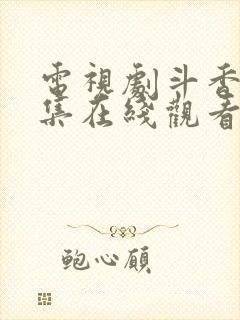 電視劇斗香
集在綫觀看
鮑心願